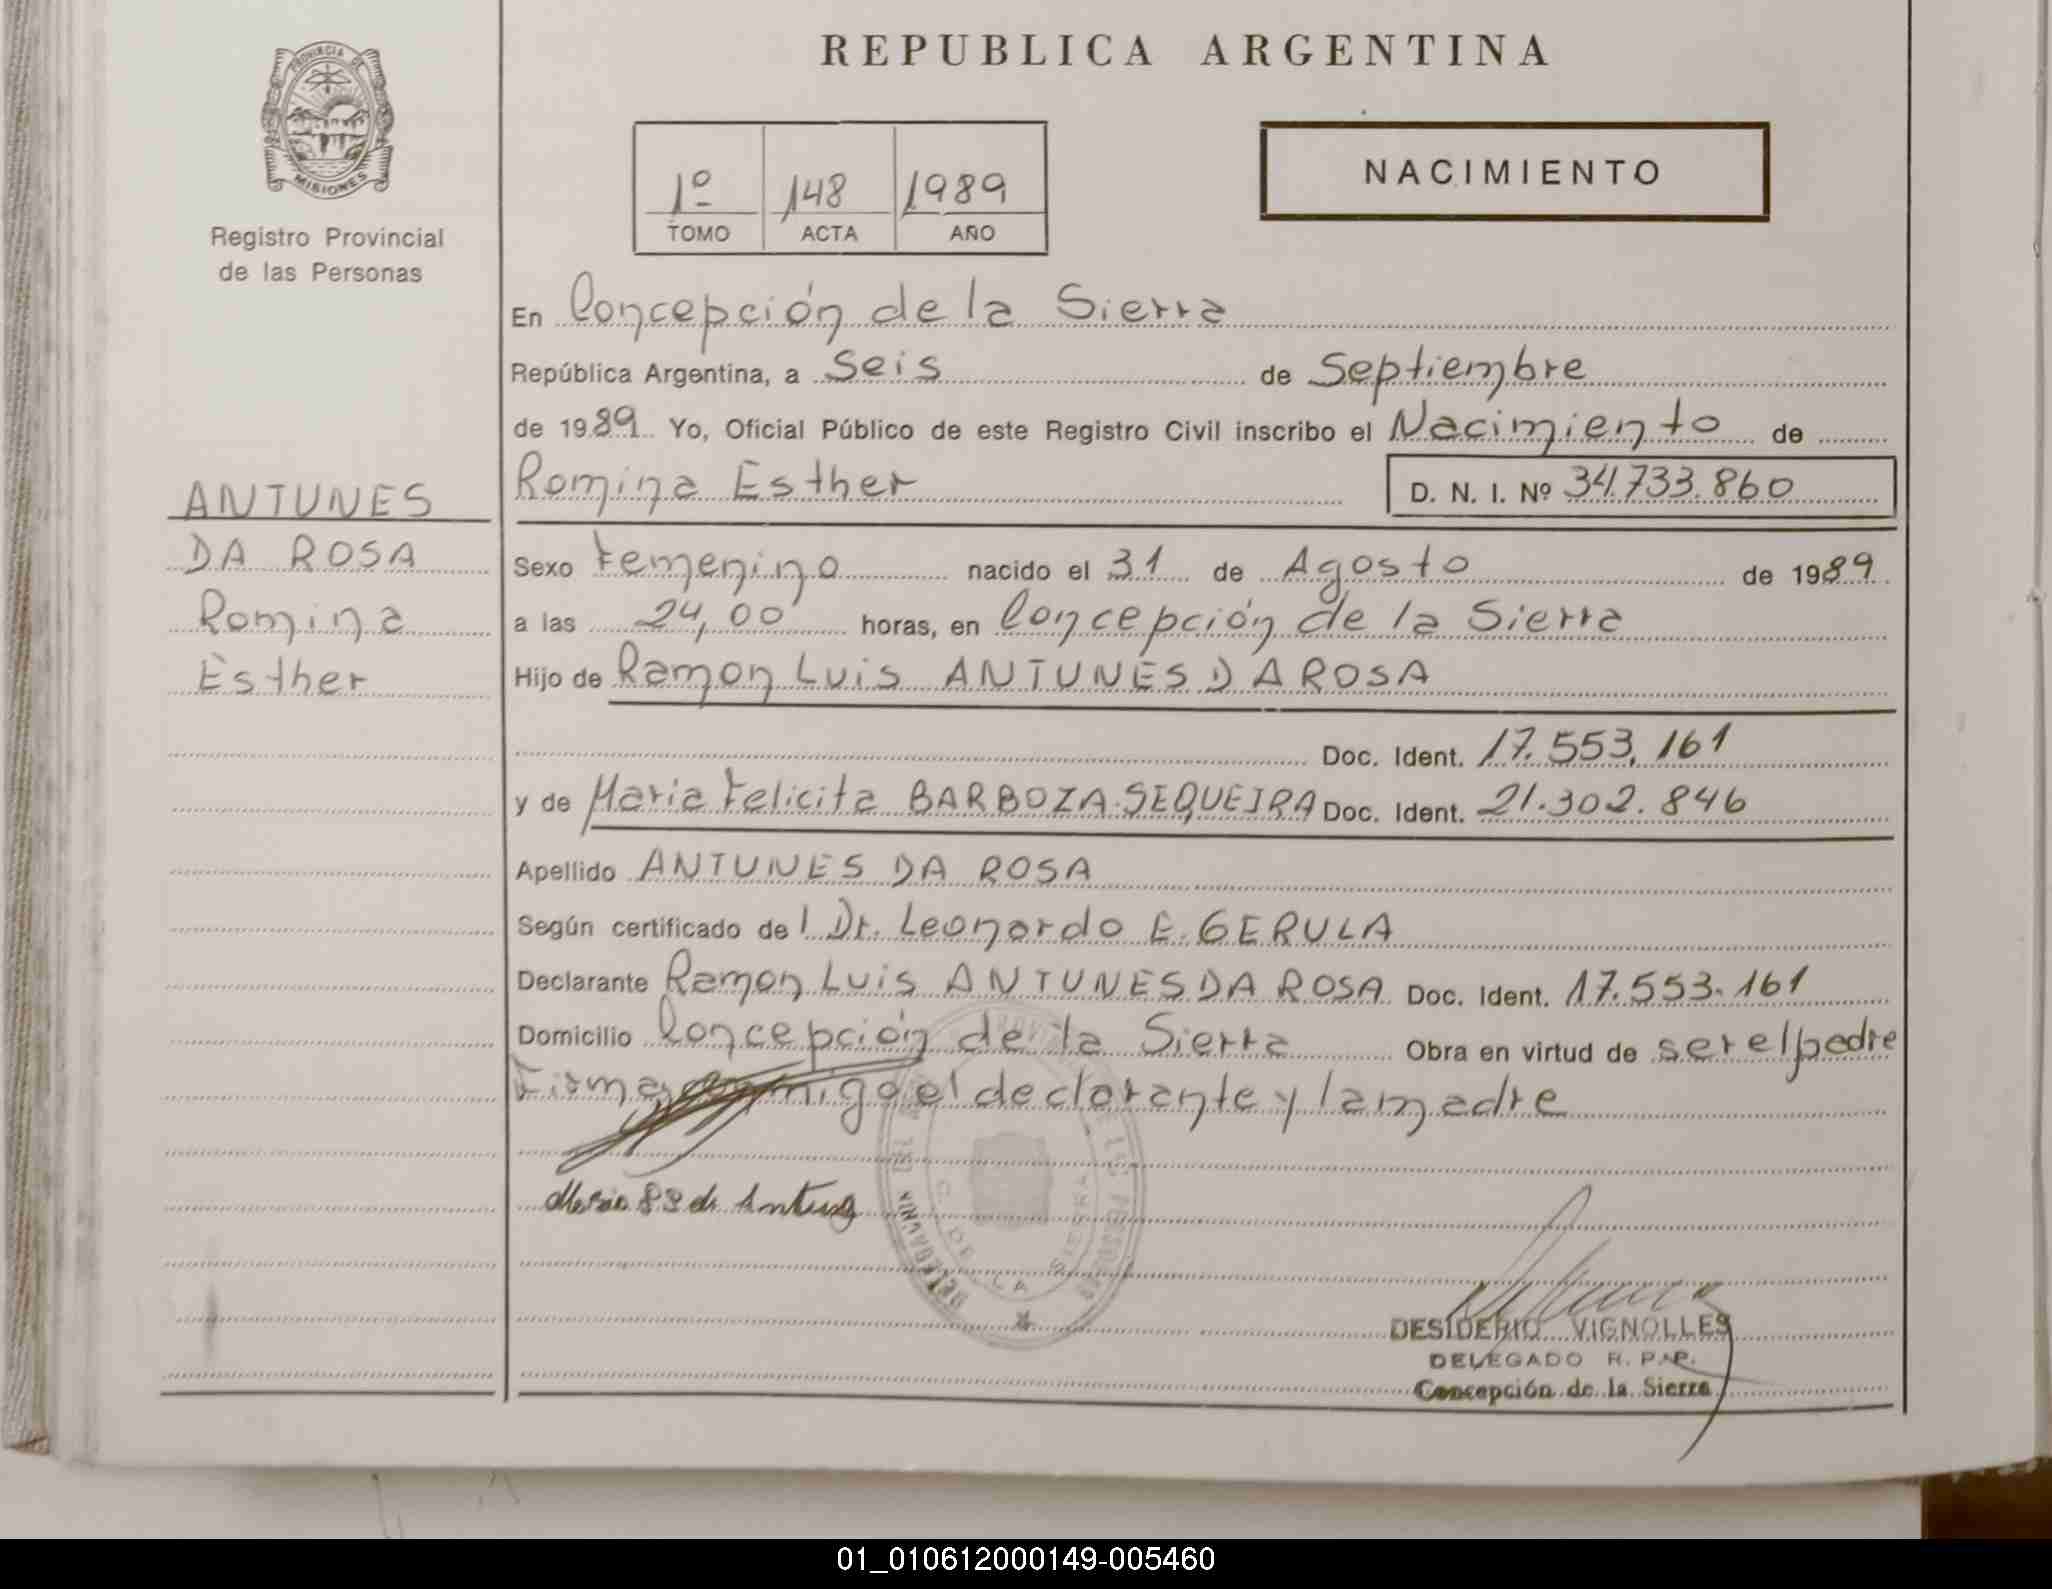 REPUBLICA ARGENTINA
PROVINCIA DE
MISIONES
Registro Provincial
de las Personas
1º 148 1989
TOMO ACTA AÑO
NACIMIENTO
En Concepción de la Sierra
República Argentina, a Seis de Septiembre
de 1989 Yo, Oficial Público de este Registro Civil inscribo el Nacimiento de
Romina Esther D. N. I. Nº 34.733.860
ANTUNES
DA ROSA
Romina
Esther
Sexo Femenino nacido el 31 de Agosto de 1989
a las 24,00 horas, en Concepción de la Sierra
Hijo de Ramon Luis ANTUNES DA ROSA
Doc. Ident. 17.553.161
y de Maria Felicita BARBOZA SEQUEIRA Doc. Ident. 21.302.846
Apellido ANTUNES DA ROSA
Según certificado del Dr. Leonardo E. GERULA
Declarante Ramon Luis ANTUNES DA ROSA Doc. Ident. 17.553.161
Domicilio Concepción de la Sierra Obra en virtud de ser el padre
Firma conmigo el declarante y la madre
DELEGACION
C. DE LA SIERRA
DESIDERIO VIGNOLLES
DELEGADO R. P. P.
Concepción de la Sierra
01_010612000149-005460